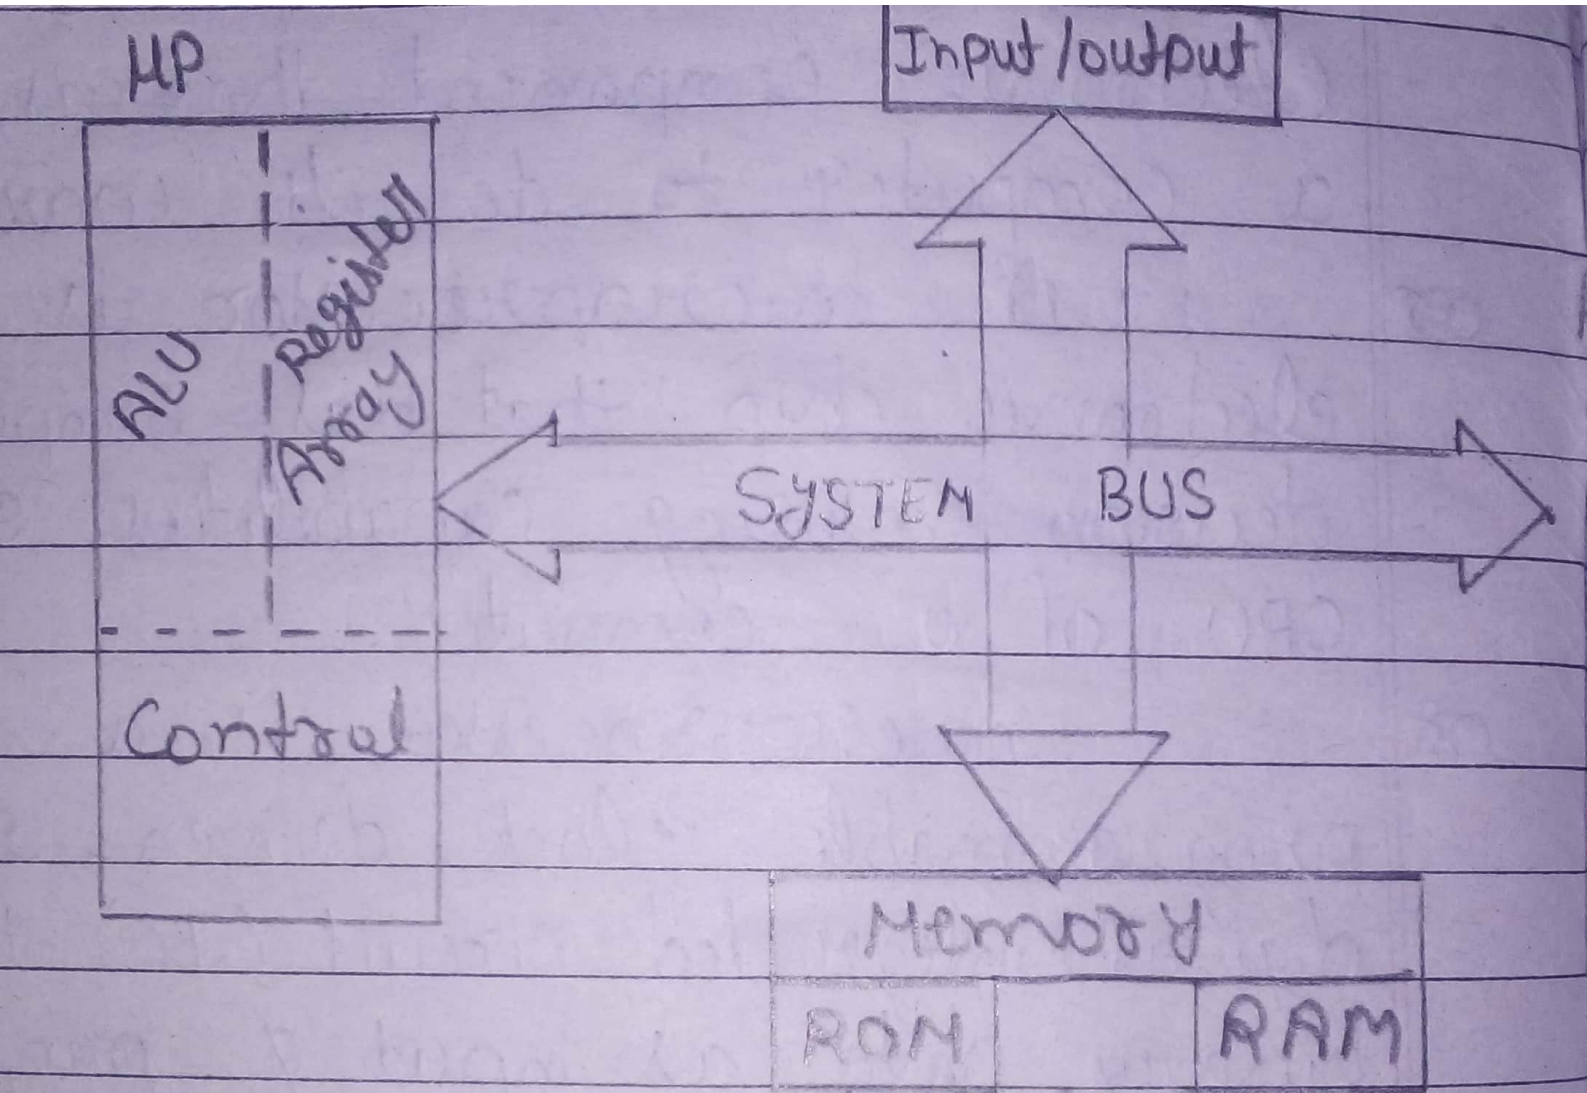 μP
Input/output
ALU
Register
Array
SYSTEM BUS
Control
Memory
ROM
RAM